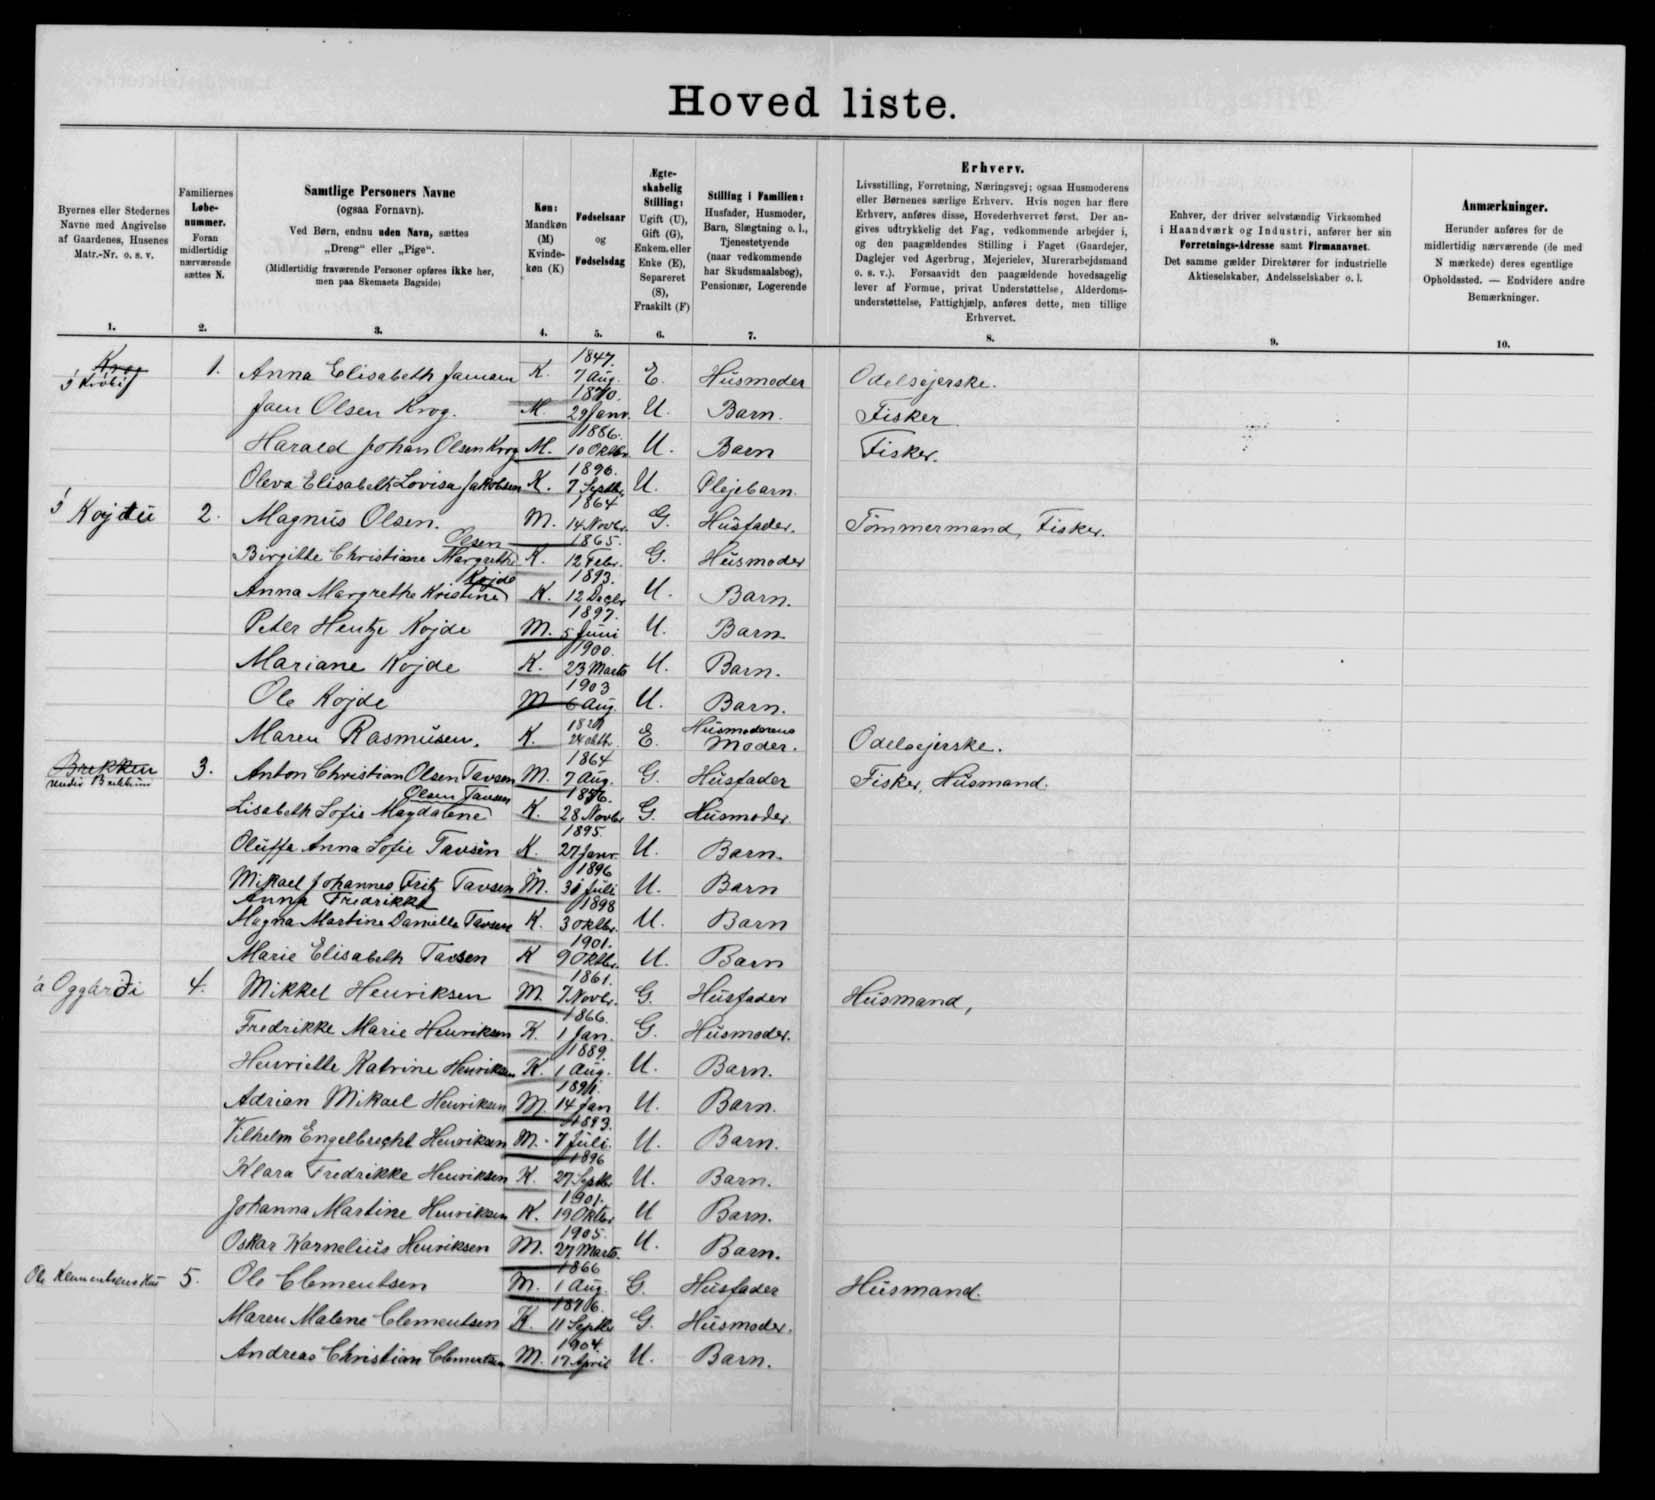 Hoved liste.
Byernes eller Stedernes
Navne med Angivelse
af Gaardenes, Husenes
Matr.-Nr. o. s. v.
1.
Familiernes
Løbe-
nummer.
Foran
midlertidig
nærværende
sættes N.
2.
Samtlige Personers Navne
(ogsaa Fornavn).
Ved Børn, endnu uden Navn, sættes
„Dreng“ eller „Pige“.
(Midlertidig fraværende Personer opføres ikke her,
men paa Skemaets Bagside)
3.
Køn:
Mandkøn
(M)
Kvinde-
køn (K)
4.
Fødselsaar
og
Fødselsdag
5.
Ægte-
skabelig
Stilling:
Ugift (U),
Gift (G),
Enkem. eller
Enke (E),
Separeret
(S),
Fraskilt (F)
6.
Stilling i Familien:
Husfader, Husmoder,
Barn, Slægtning o. l.,
Tjenestetyende
(naar vedkommende
har Skudsmaalsbog),
Pensionær, Logerende
7.
Erhverv.
Livsstilling, Forretning, Næringsvej; ogsaa Husmoderens
eller Børnenes særlige Erhverv. Hvis nogen har flere
Erhverv, anføres disse, Hovederhvervet først. Der an-
gives udtrykkelig det Fag, vedkommende arbejder i,
og den paagældendes Stilling i Faget (Gaardejer,
Daglejer ved Agerbrug, Mejerielev, Murerarbejdsmand
o. s. v.). Forsaavidt den paagældende hovedsagelig
lever af Formue, privat Understøttelse, Alderdoms-
understøttelse, Fattighjælp, anføres dette, men tillige
Erhvervet.
8.
Enhver, der driver selvstændig Virksomhed
i Haandværk og Industri, anfører her sin
Forretnings-Adresse samt Firmanavnet.
Det samme gælder Direktører for industrielle
Aktieselskaber, Andelsselskaber o. l.
9.
Anmærkninger.
Herunder anføres for de
midlertidig nærværende (de med
N mærkede) deres egentlige
Opholdssted. — Endvidere andre
Bemærkninger.
10.
1. Anna Elisabeth Jansen K. 1847. 7 Aug. E. Husmoder Odelsejerske.
Joen Olsen Krog. M. 1870. 29 Janr. U. Barn. Fisker
Harald Johan Olsen Krog M. 1886. 10 Oktbr. U. Barn Fisker.
Oleva Elisabeth Lovisa Jakobsen K. 1896. 7 Septbr. U. Plejebarn.
í Kojtu 2. Magnus Olsen. M. 1864 14 Novbr. G. Husfader. Tømmermand, Fisker.
Birgitte Christiane Margrethe Olsen K. 1865. 12 Febr. G. Husmoder
Anna Margrethe Kristine Kojde K. 1893. 12 Decbr U. Barn.
Peter Hentze Kojde M. 1897. 5 Juni U. Barn.
Mariane Kojde K. 1900. 23 Marts U. Barn.
Ole Kojde M 1903 6 Aug. U. Barn.
Maren Rasmusen. K. 24 oktbr. E. Husmoderens Moder. Odelsejerske.
Brekken
undir Brekkuni
3. Anton Christian Olsen Tavsen M. 1864 7 Aug. G. Husfader Fisker, Husmand.
Lisabeth Sofie Magdalene Olsen Tavsen K. 1876. 28 Novbr G. Husmoder.
Oluffa Anna Sofie Tavsen K. 1895. 27 Janr. U. Barn.
Mikael Johannes Fritz Tavsen M. 1896 31 Juli U. Barn
Anna Fredrikke
Magna Martine Danielle Tavsen K. 1898 3 Oktbr. U. Barn
Marie Elisabeth Tavsen K 1901. 9 Oktbr. U. Barn
á Oggarði 4. Mikkel Henriksen M. 1861. 7 Novbr. G. Husfader Husmand,
Fredrikke Marie Henriksen K. 1866. 1 Jan. G. Husmoder.
Henriette Katrine Henriksen K. 1889. 1 Aug. U. Barn.
Adrian Mikael Henriksen M. 1891. 14 Jan U. Barn.
Vilhelm Engelbrecht Henriksen M. 1893. 7 Juli U. Barn.
Klara Fredrikke Henriksen K. 1896 27 Septbr U. Barn.
Johanna Martine Henriksen K. 1901. 19 Oktbr U Barn.
Oskar Kornelius Henriksen M. 1905. 27 Marts. U. Barn.
Ole Klementsens Hus 5. Ole Clementsen M. 1866 1 Aug. G. Husfader Husmand.
Maren Malene Clementsen K. 1876. 11 Septbr G. Husmoder.
Andreas Christian Clementsen M. 1904. 17 April U. Barn.